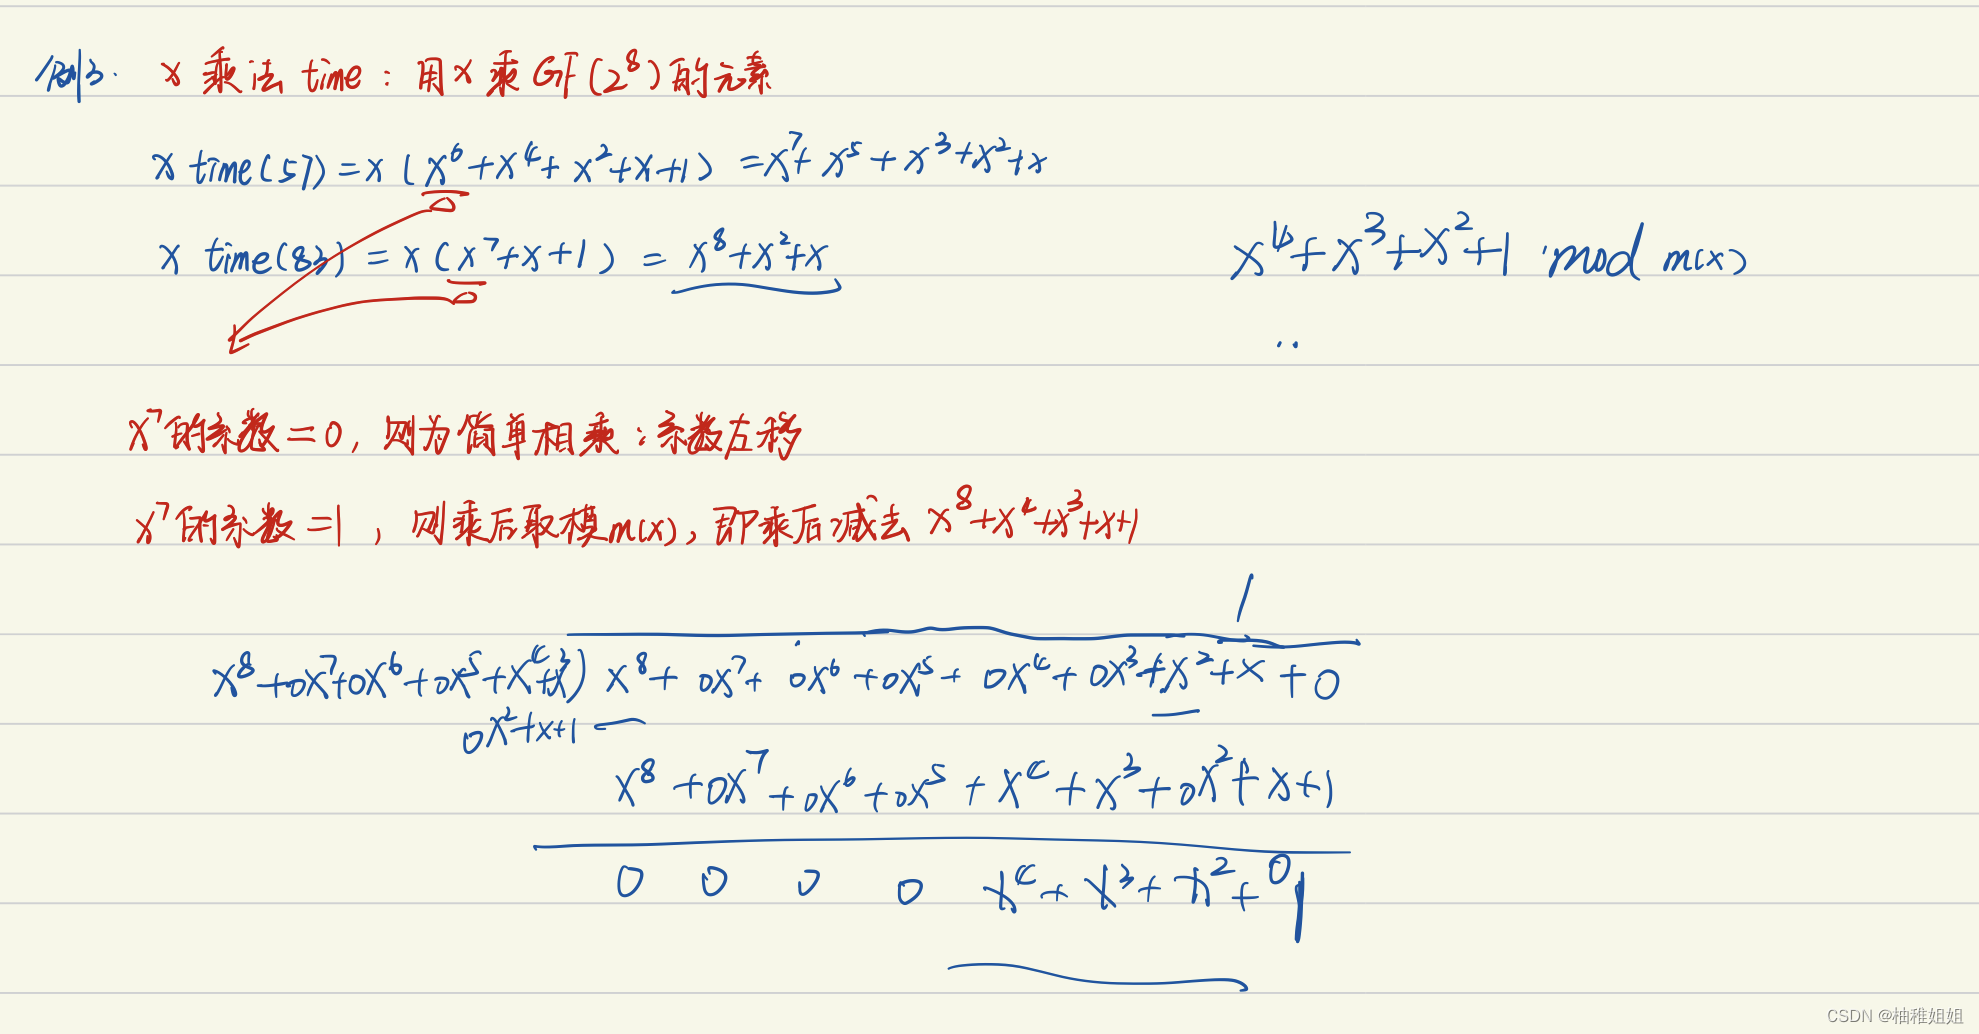 例3. x 乘法 time：用 x 乘 GF(2⁸) 的元素
x time(57) = x (x⁶+x⁴+x²+x+1) = x⁷+x⁵+x³+x²+x
x time(83) = x (x⁷+x+1) = x⁸+x²+x
x⁴+x³+x²+1 mod m(x)
x⁷的系数=0, 则为简单相乘：系数左移
x⁷的系数=1, 则乘后取模m(x), 即乘后减去 x⁸+x⁴+x³+x+1
1
x⁸+0x⁷+0x⁶+0x⁵+x⁴+x³) x⁸+0x⁷+0x⁶+0x⁵+0x⁴+0x³+x²+x+0
0x²+x+1
x⁸+0x⁷+0x⁶+0x⁵+x⁴+x³+0x²+x+1
0 0 0 0 x⁴+x³+x²+0 1
CSDN @柚稚姐姐